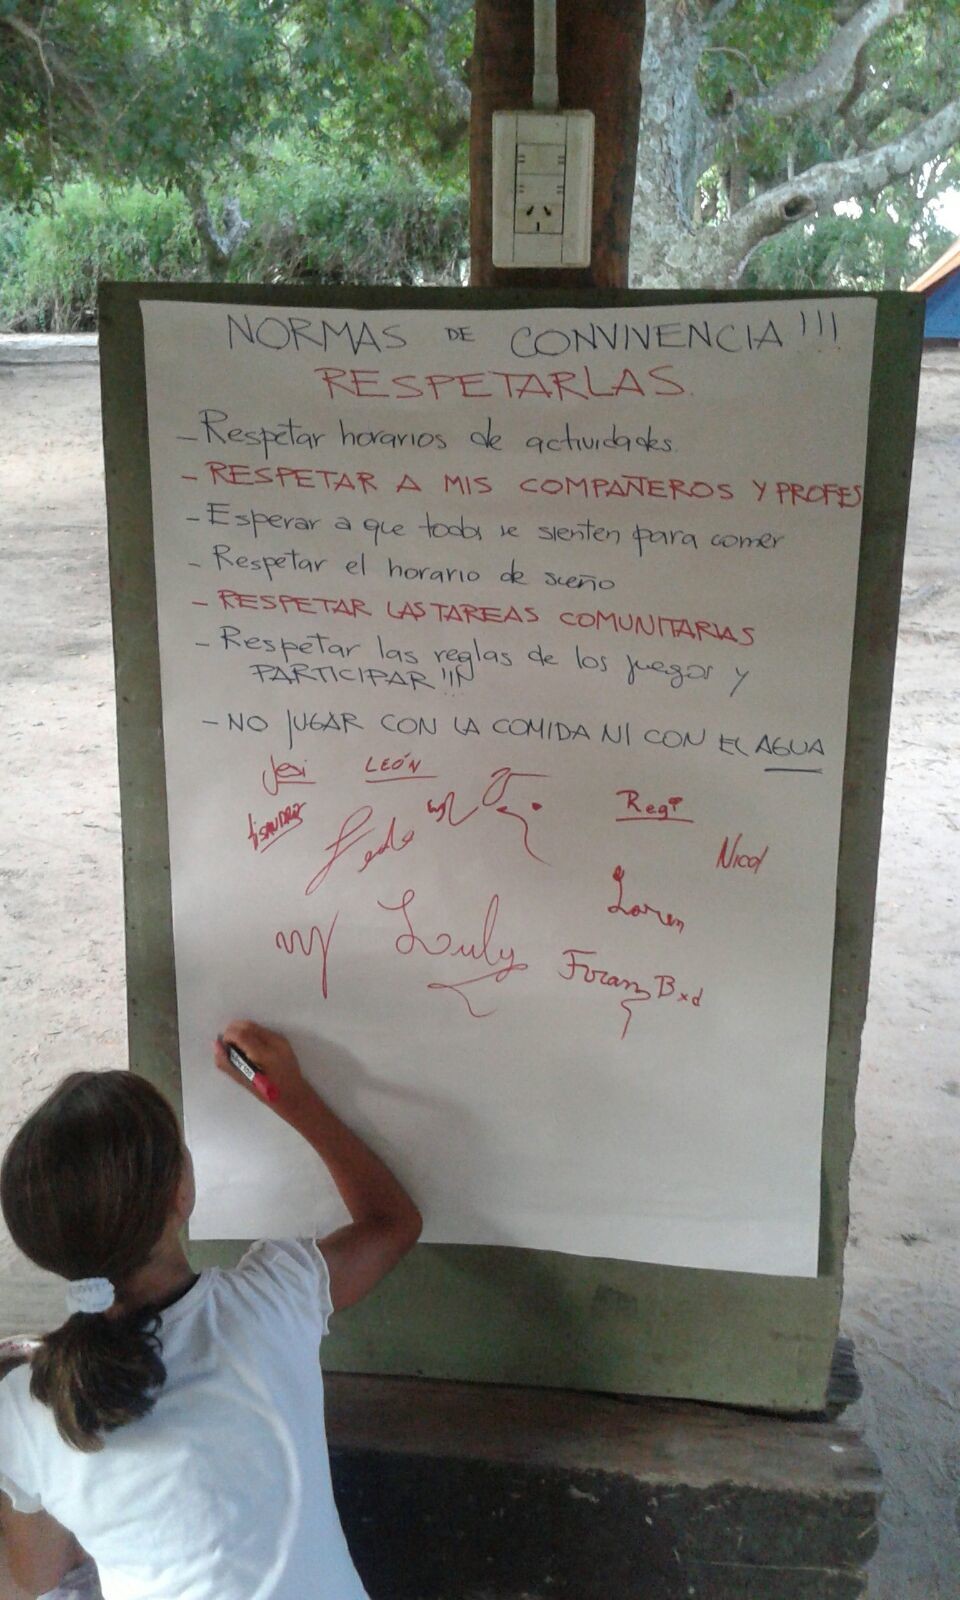 NORMAS DE CONVIVENCIA!!!
RESPETARLAS.
- Respetar horarios de actividades.
- RESPETAR A MIS COMPAÑEROS Y PROFES
- Esperar a que todos se sienten para comer
- Respetar el horario de sueño
- RESPETAR LAS TAREAS COMUNITARIAS
- Respetar las reglas de los juegos y
PARTICIPAR!!!
- NO JUGAR CON LA COMIDA NI CON EL AGUA
Jesi LEÓN
Regi
LiSANDRO Fede
Nicol
Loren
Luly
Firan B xd